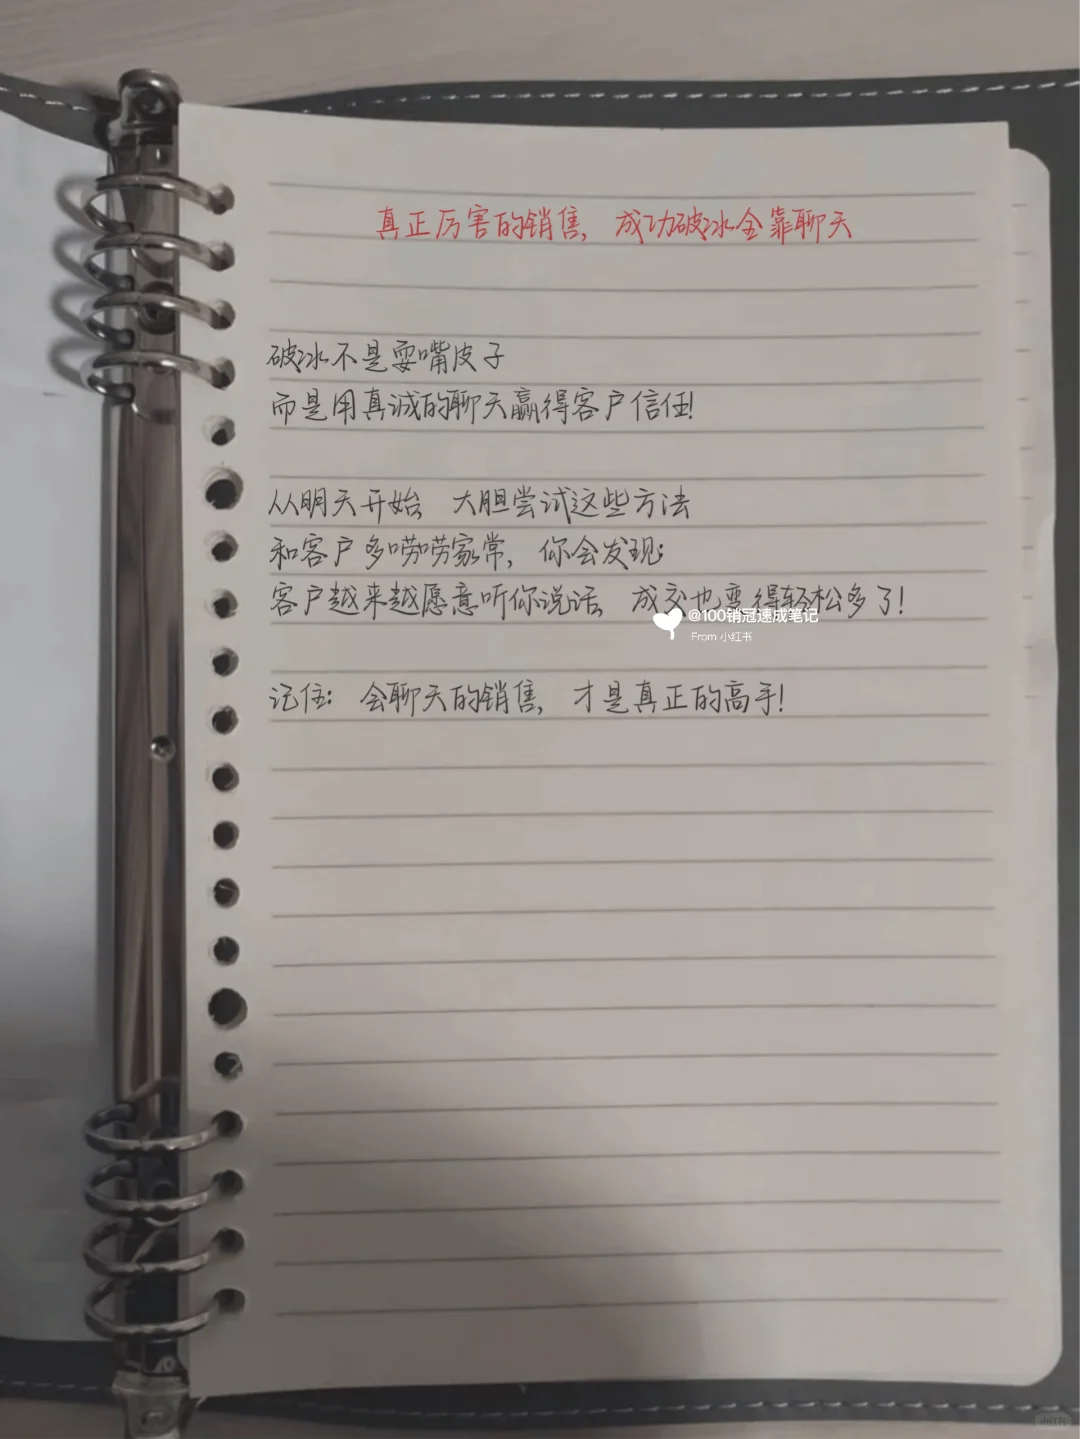 真正厉害的销售，成功破冰全靠聊天
破冰不是耍嘴皮子
而是用真诚的聊天赢得客户信任！
从明天开始 大胆尝试这些方法
和客户多唠唠家常，你会发现：
客户越来越愿意听你说话，成交也变得轻松多了！
@100销冠速成笔记
From 小红书
记住：会聊天的销售，才是真正的高手！
小红书